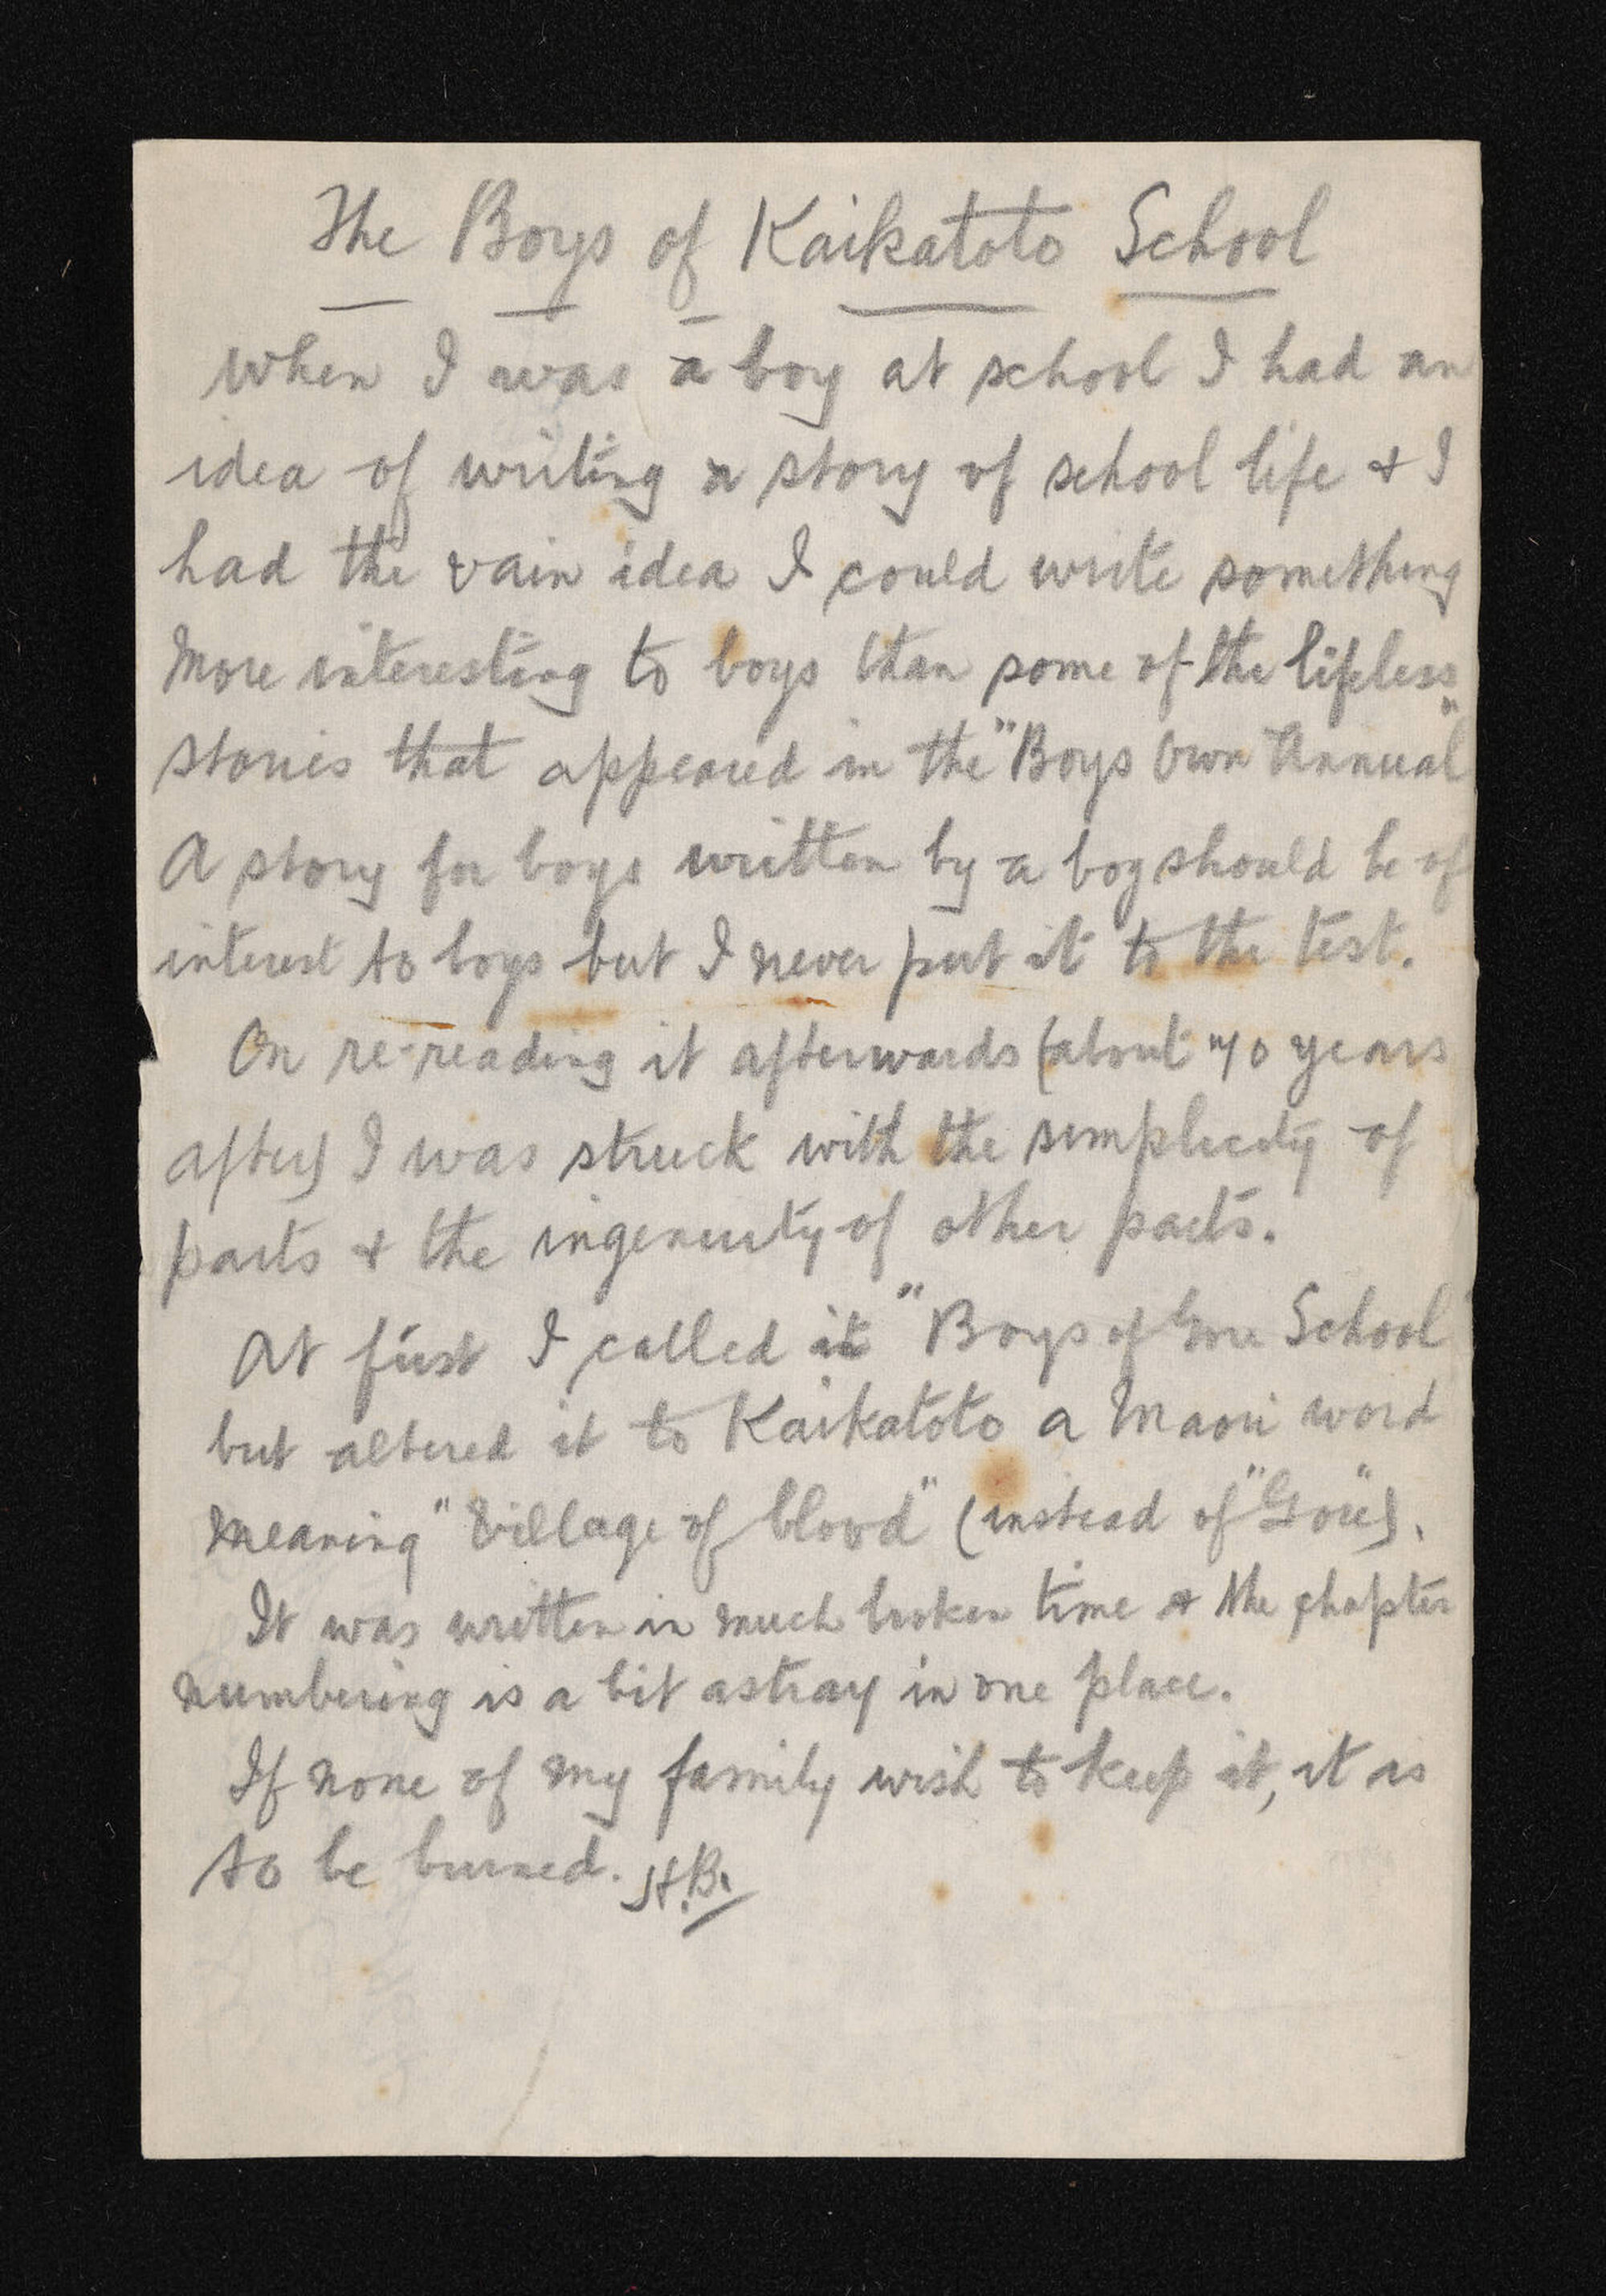 The Boys of Kaikatoto School
When I was a boy at school I had an
idea of writing a story of school life & I
had the vain idea I could write something
more interesting to boys than some of the lifeless
stories that appeared in the "Boys Own Annual"
A story for boys written by a boy should be of
interest to boys but I never put it to the test.
On re-reading it afterwards (about 40 years
after) I was struck with the simplicity of
parts & the ingenuity of other parts.
At first I called it "Boys of Gore School
but altered it to Kaikatoto a Maori word
meaning "Village of blood" (instead of "Gore").
It was written in much broken time & the chapter
numbering is a bit astray in one place.
If none of my family wish to keep it, it is
to be burned. H.B.